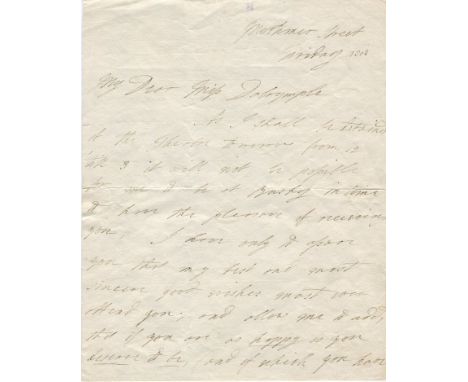 Street
Friday
My Dear Miss Dalrymple
As I shall be detained
at the Theatre Tomorrow from 10
till 3 it will not be possible
for me to be at Bushy in time
to have the pleasure of receiving
you. I have only to assure
you that my best and most
sincere good wishes most
attend you, and allow me to add,
that if you are as happy as you
deserve to be, and of which you have